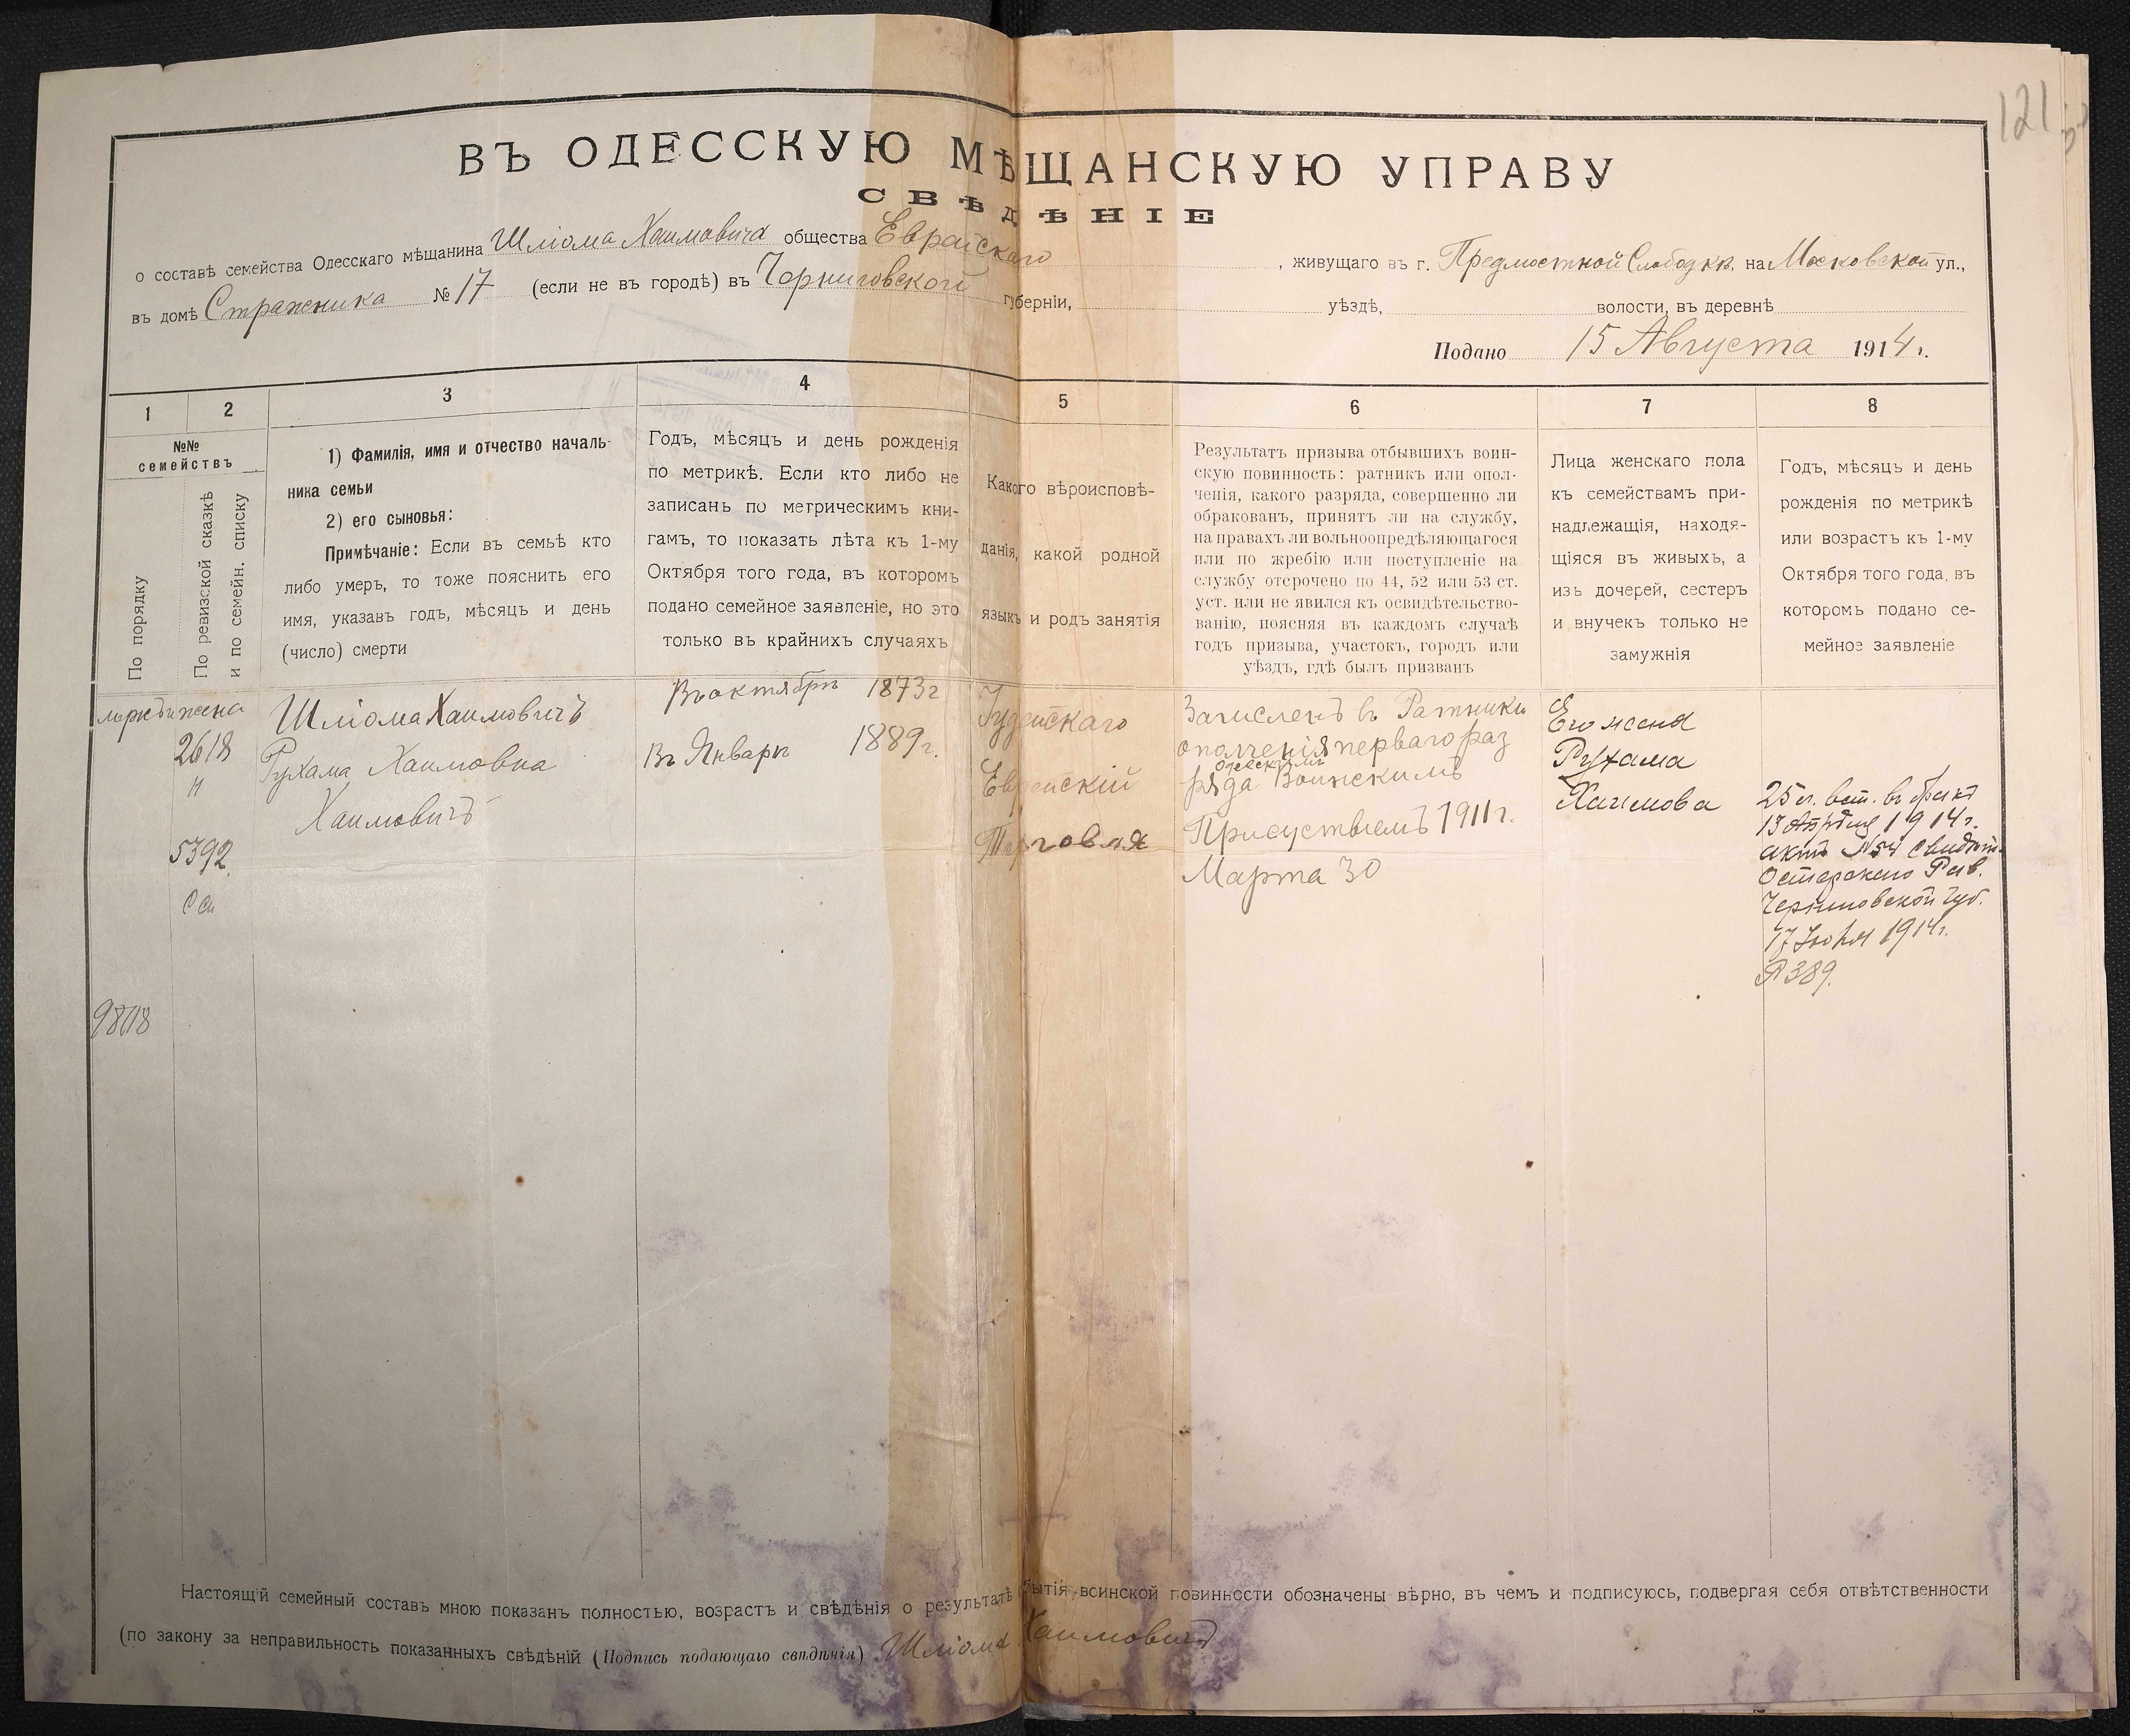 121
ВЪ ОДЕССКУЮ МѢЩАНСКУЮ УПРАВУ
СВѢДѢНІЕ
о составѣ семейства Одесскаго мѣщанина Шліома Хаимовича общества Еврейскаго, живущаго въ г. Предмостной Слободкѣ, на Московской ул.,
въ домѣ Стражника № 17 (если не въ городѣ) въ Черниговской губерніи, уѣздѣ, волости, въ деревнѣ
Подано 15 Августа 1914 г.
1
2
3
4
5
6
7
8
№№
семействъ
По порядку
По ревизской сказкѣ
и по семейн. списку
1) Фамилія, имя и отчество началь-
ника семьи
2) его сыновья:
Примѣчаніе: Если въ семьѣ кто
либо умеръ, то тоже пояснить его
имя, указавъ годъ, мѣсяцъ и день
(число) смерти
Годъ, мѣсяцъ и день рожденія
по метрикѣ. Если кто либо не
записанъ по метрическимъ кни-
гамъ, то показать лѣта къ 1-му
Октября того года, въ которомъ
подано семейное заявленіе, но это
только въ крайнихъ случаяхъ
Какого вѣроисповѣ-
данія, какой родной
языкъ и родъ занятія
Результатъ призыва отбывшихъ воин-
скую повинность: ратникъ или опол-
ченія, какого разряда, совершенно ли
обракованъ, принятъ ли на службу,
на правахъ ли вольноопредѣляющагося
или по жребію или поступленіе на
службу отсрочено по 44, 52 или 53 ст.
уст. или не явился къ освидѣтельство-
ванію, поясняя въ каждомъ случаѣ
годъ призыва, участокъ, городъ или
уѣздъ, гдѣ былъ призванъ
Лица женскаго пола
къ семействамъ при-
надлежащія, находя-
щіяся въ живыхъ, а
изъ дочерей, сестеръ
и внучекъ только не
замужнія
Годъ, мѣсяцъ и день
рожденія по метрикѣ
или возрастъ къ 1-му
Октября того года, въ
которомъ подано се-
мейное заявленіе
жена
2618
5392.
9808
Шліома Хаимовичъ
Рухама Хаимовна
Хаимовичъ
Въ октябрѣ 1873 г
Въ Январѣ 1889 г.
Іудейскаго
Еврейскій
Торговля
Зачисленъ въ Ратники
ополченія перваго раз
ряда Одесскимъ Воинскимъ
Присуствіемъ 1911 г.
Марта 30
Его жена
Рухама
Хаимова
25 л. вст. въ бракъ
13 Апрѣля 1914 г.
актъ № 54 свидѣт.
Остерскаго Рав.
Черниговской Губ.
17 Іюля 1914 г.
№ 389.
Настоящій семейный составъ мною показанъ полностью, возрастъ и свѣдѣнія о результатѣ отбытія воинской повинности обозначены вѣрно, въ чемъ и подписуюсь, подвергая себя отвѣтственности
(по закону за неправильность показанныхъ свѣдѣній (Подпись подающаго свѣдѣнія) Шліома Хаимовичъ